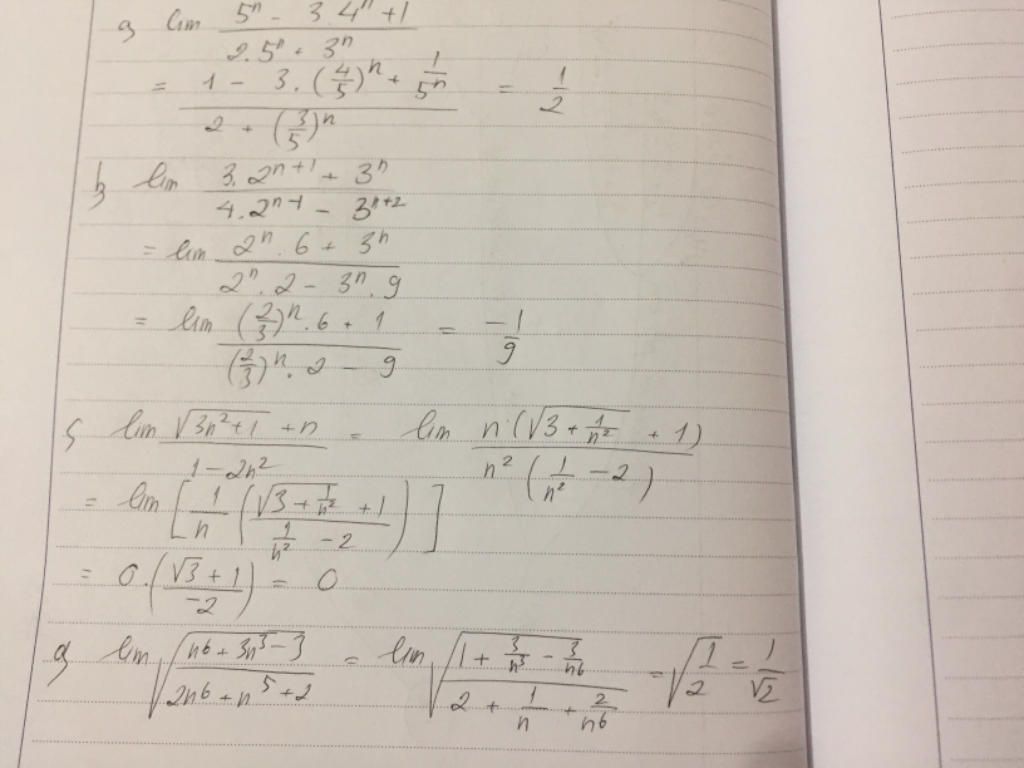 a) lim (5^n - 3.4^n + 1) / (2.5^n + 3^n)
= (1 - 3.(4/5)^n + 1/5^n) / (2 + (3/5)^n) = 1/2
b) lim (3.2^{n+1} + 3^n) / (4.2^{n-1} - 3^{n+2})
= lim (2^n.6 + 3^n) / (2^n.2 - 3^n.9)
= lim ((2/3)^n.6 + 1) / ((2/3)^n.2 - 9) = -1/9
c) lim (√(3n²+1) + n) / (1 - 2n²) = lim n.(√(3 + 1/n²) + 1) / n²(1/n² - 2)
= lim [1/n ((√(3 + 1/n²) + 1) / (1/n² - 2))]
= 0.((√3 + 1) / -2) = 0
d) lim √((n⁶ + 3n³ - 3) / (2n⁶ + n⁵ + 2)) = lim √((1 + 3/n³ - 3/n⁶) / (2 + 1/n + 2/n⁶)) = √(1/2) = 1/√2